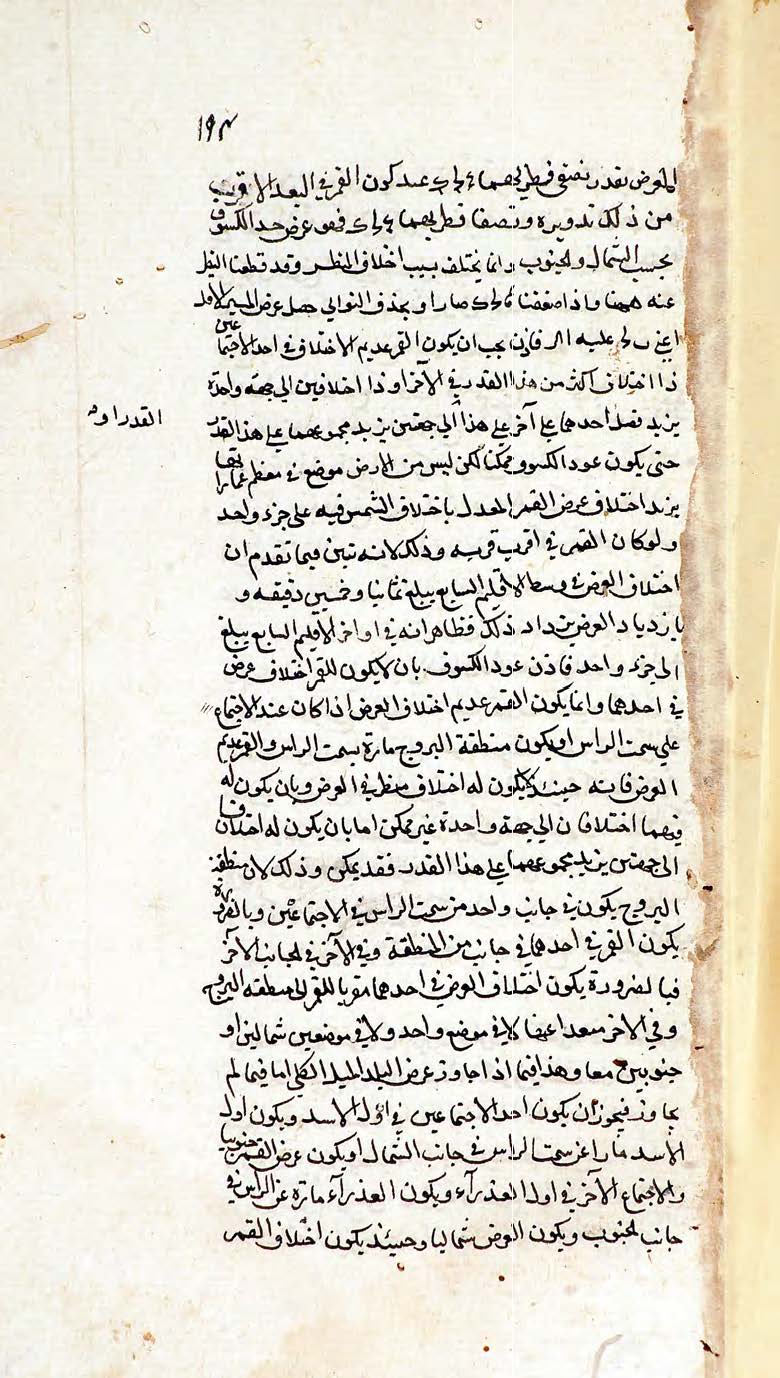 ١٩٣
العرض بقدر نصفي قطريهما عند كون القمر في البعد الاقرب
من ذلك تدويره ونصفا قطريهما فهو عرض حد الكسوف
بحسب الشمال والجنوب وانما يختلف بسبب اختلاف المنظر وقد قطعنا النظر
عنه ههنا واذا صار او بحذف التوالي حصل عرض المسير الاول
اعني عليه الر فاذن يجب ان يكون القمر عديم الاختلاف في احد الاجتماعين
ذا اختلاف اكثر من هذا القدر في الآخر او ذا اختلافين الى جهة واحدة
يزيد فضل احدهما على آخر على هذا الى جهتين يزيد مجموعهما على هذا القدر
القدر او
حتى يكون عود الكسوف ممكنا لكن ليس من الارض موضع في معظم عماراتها
يزيد اختلاف عرض القمر المعدل باختلاف الشمس فيه على جزء واحد
ولو كان القمر في اقرب قربه وذلك لانه تبين فيما تقدم ان
اختلاف العرض في وسط الاقليم السابع يبلغ ثمانيا وخمسين دقيقه و
بازدياد العرض يزداد ذلك فظاهر انه في اواخر الاقليم السابع يبلغ
الى جزء واحد فاذن عود الكسوف بان لا يكون للقمر اختلاف عرض
في احدهما وانما يكون القمر عديم اختلاف العرض اذا كان عند الاجتماع
على سمت الراس او يكون منطقة البروج مارة بسمت الراس والقمر عديم
العرض فانه حينئذ لا يكون له اختلاف منظر في العرض وبان يكون له
فيهما اختلافان الى جهة واحدة غير ممكن اما بان يكون له اختلافان
الى جهتين يزيد مجموعهما على هذا القدر فقد يمكن وذلك لان منطقة
البروج يكون في جانب واحد من سمت الراس في الاجتماعين وبالضرورة
يكون القمر في احدهما في جانب من المنطقة وفي الآخر في الجانب الآخر
فبالضرورة يكون اختلاف العرض في احدهما مقربا للقمر الى منطقة البروج
وفي الاخر مبعدا عنها لا في موضع واحد ولا في موضعين شماليين او
جنوبيين معا وهذا فيما اذا جاوز عرض البلد الميل الكلي اما فيما لم
يجاوز فيجوز ان يكون احد الاجتماعين في اول الاسد ويكون اول
الاسد مارا عن سمت الراس في جانب الشمال او يكون عرض القمر جنوبيا
والاجتماع الآخر في اول العذرآء ويكون العذرآء مارة عن الراس في
جانب الجنوب ويكون العرض شماليا وحينئذ يكون اختلاف القمر